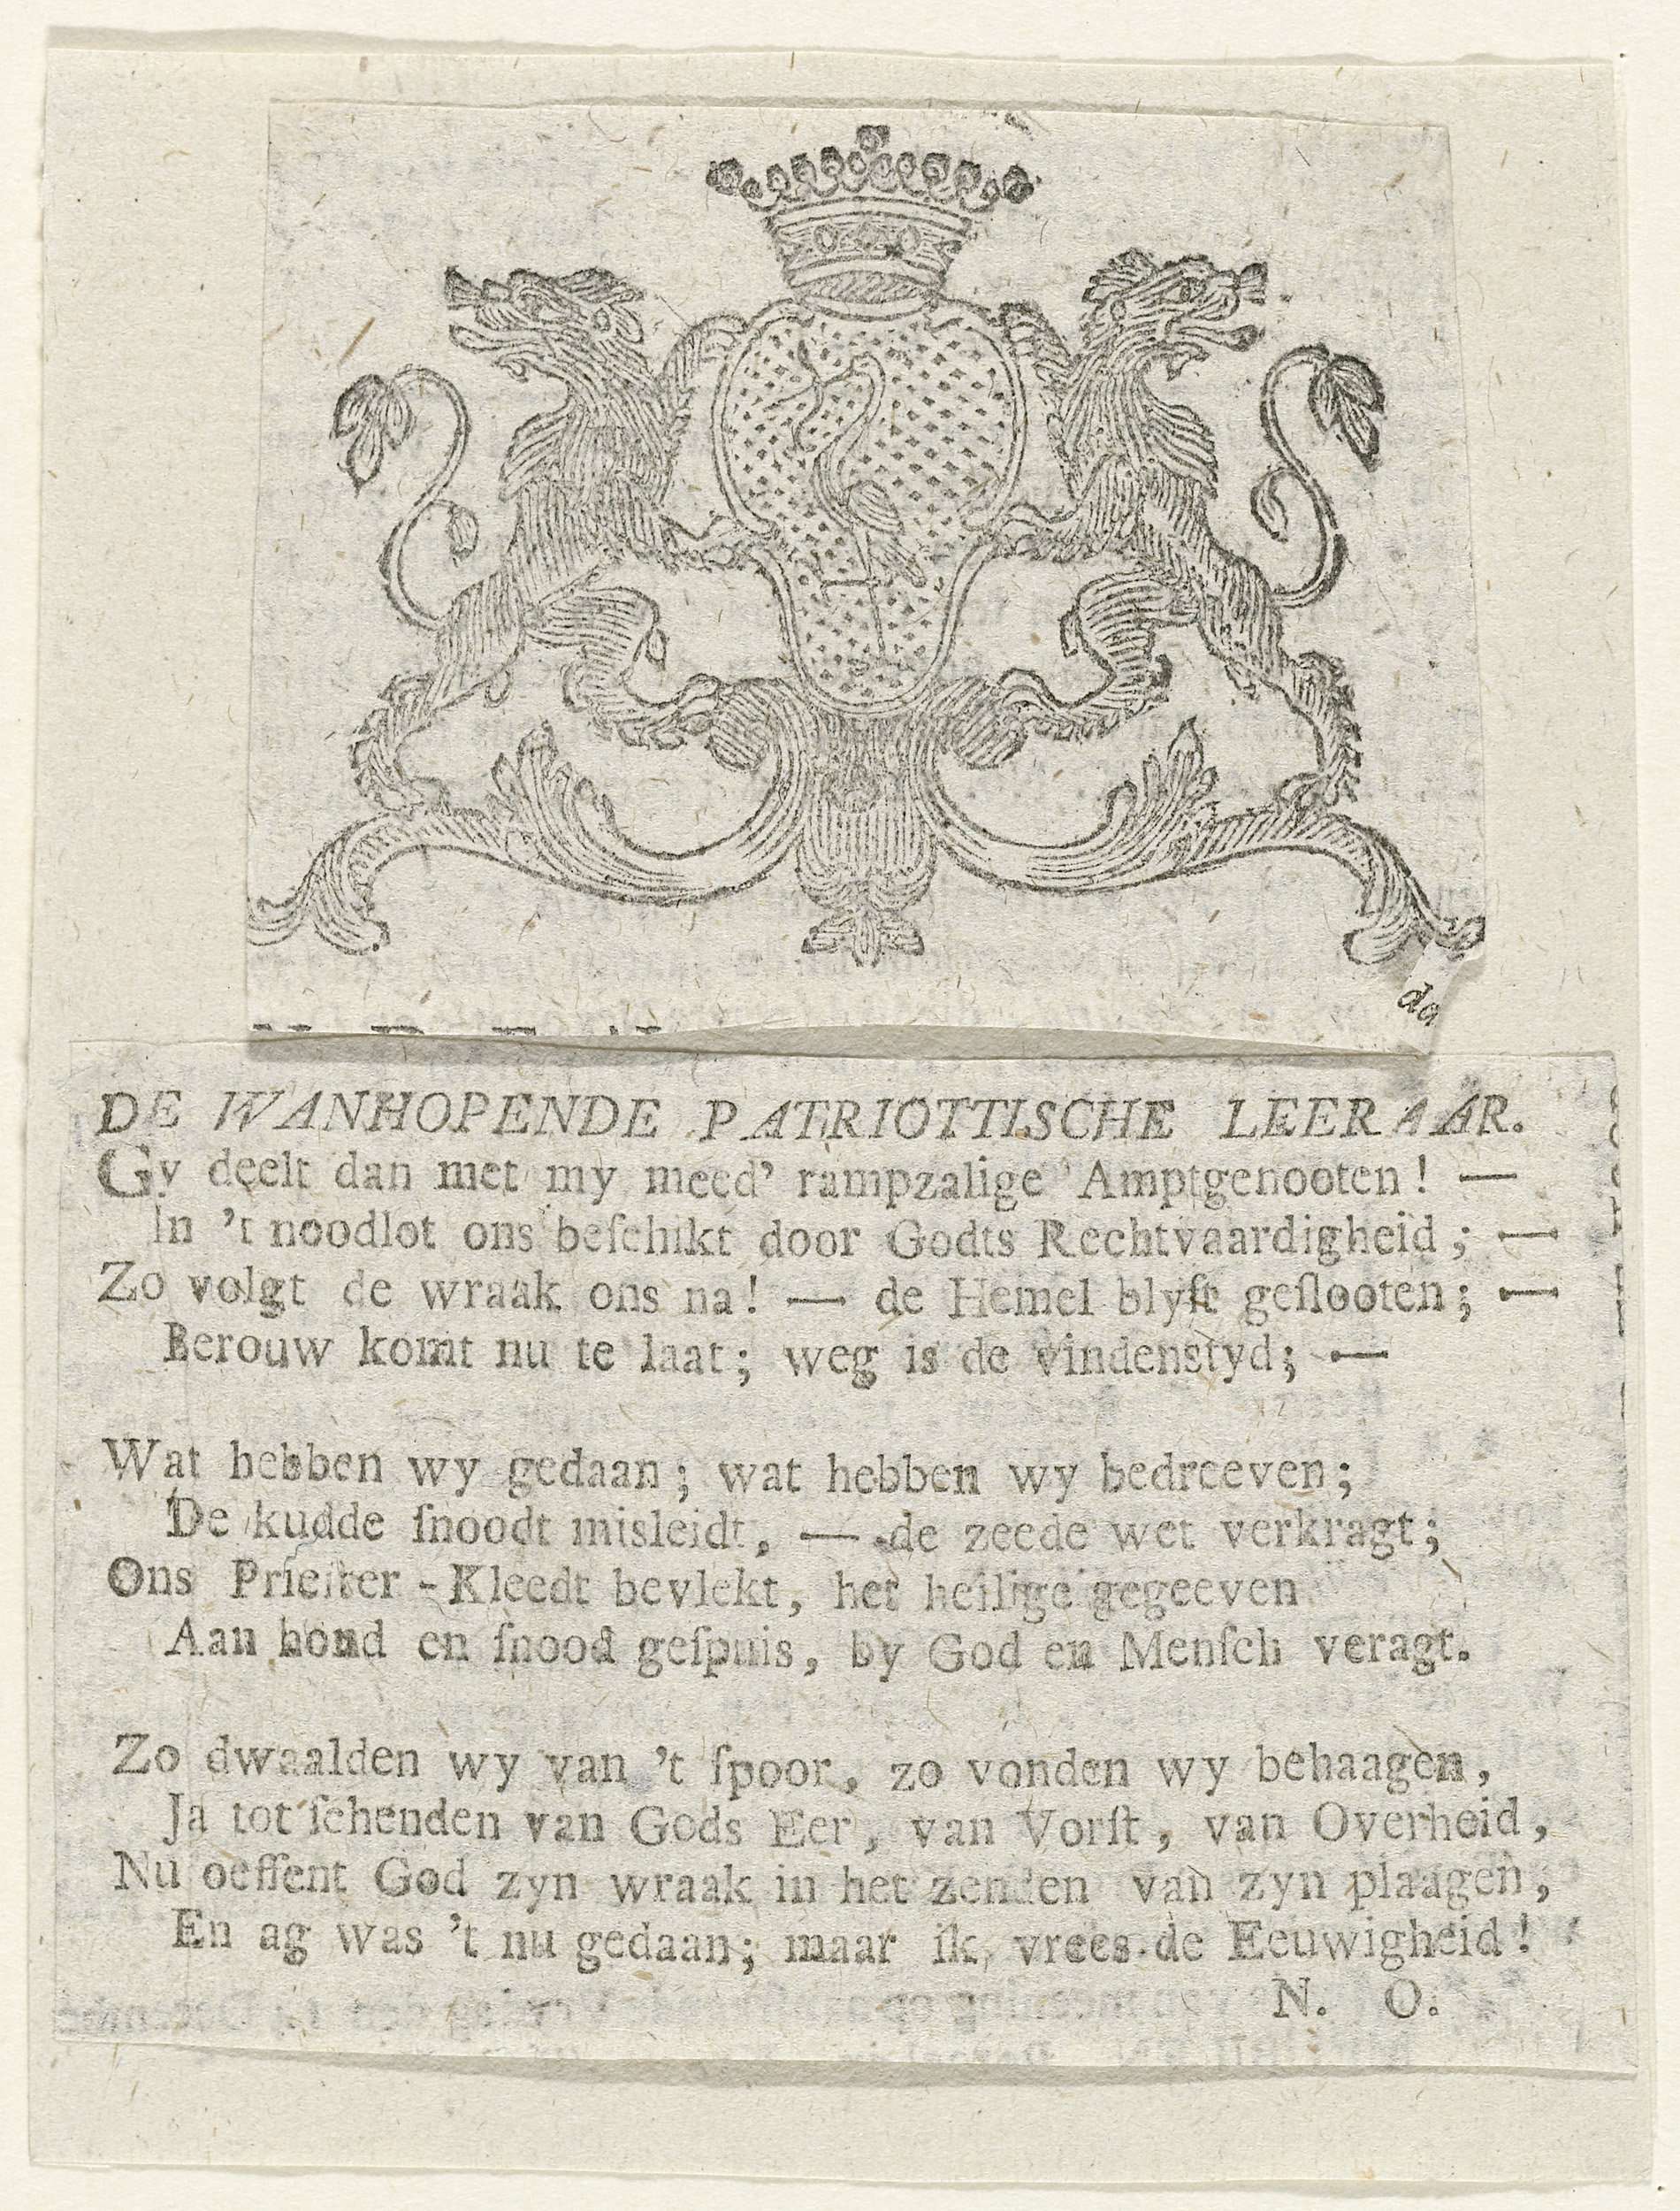 da
DE WANHOPENDE PATRIOTTISCHE LEERAAR.
Gy deelt dan met my meed' rampzalige Amptgenooten! —
In 't noodlot ons beſchikt door Godts Rechtvaardigheid; —
Zo volgt de wraak ons na! — de Hemel blyft geſlooten; —
Berouw komt nu te laat; weg is de vindenstyd; —
Wat hebben wy gedaan; wat hebben wy bedreeven;
De kudde ſnoodt misleidt, — de zeede wet verkragt;
Ons Prieſter-Kleedt bevlekt, het heilige gegeeven
Aan hond en ſnood geſpuis, by God en Menſch veragt.
Zo dwaalden wy van 't ſpoor, zo vonden wy behaagen,
Ja tot ſchenden van Gods Eer, van Vorſt, van Overheid,
Nu oeffent God zyn wraak in het zenden van zyn plaagen,
En ag was 't nu gedaan; maar ik vrees de Eeuwigheid!
N. O.